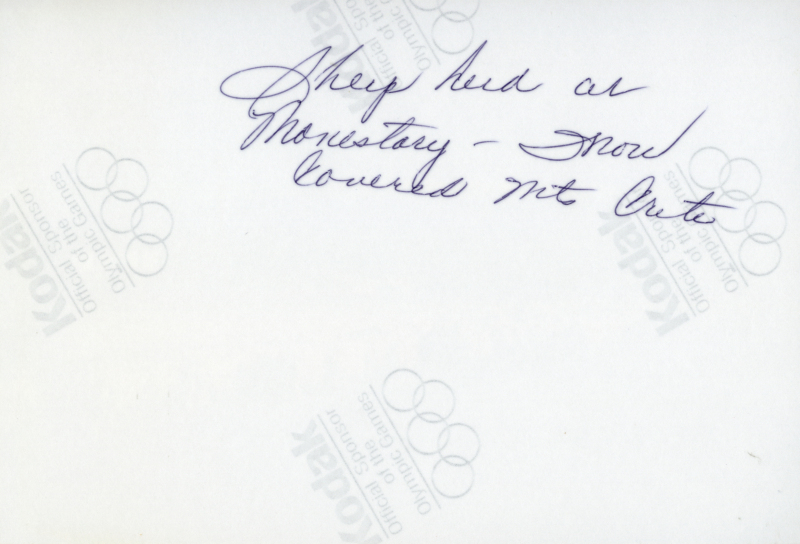 Sheep herd at
Monestary - Snow
Covered Mts Crete
Kodak
Official Sponsor
of the
Olympic Games
Kodak
Official Sponsor
of the
Olympic Games
Kodak
Official Sponsor
of the
Olympic Games
Kodak
Official Sponsor
of the
Olympic Games